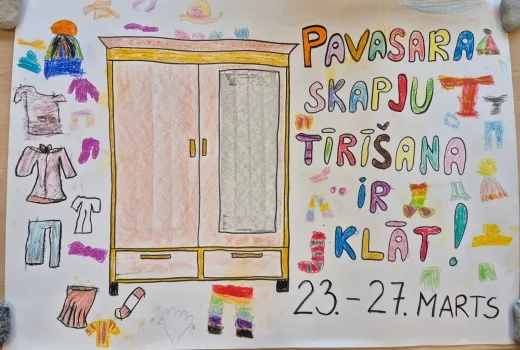 PAVASARA
SKAPJU
TĪRĪŠANA
IR
KLĀT!
23.-27. MARTS